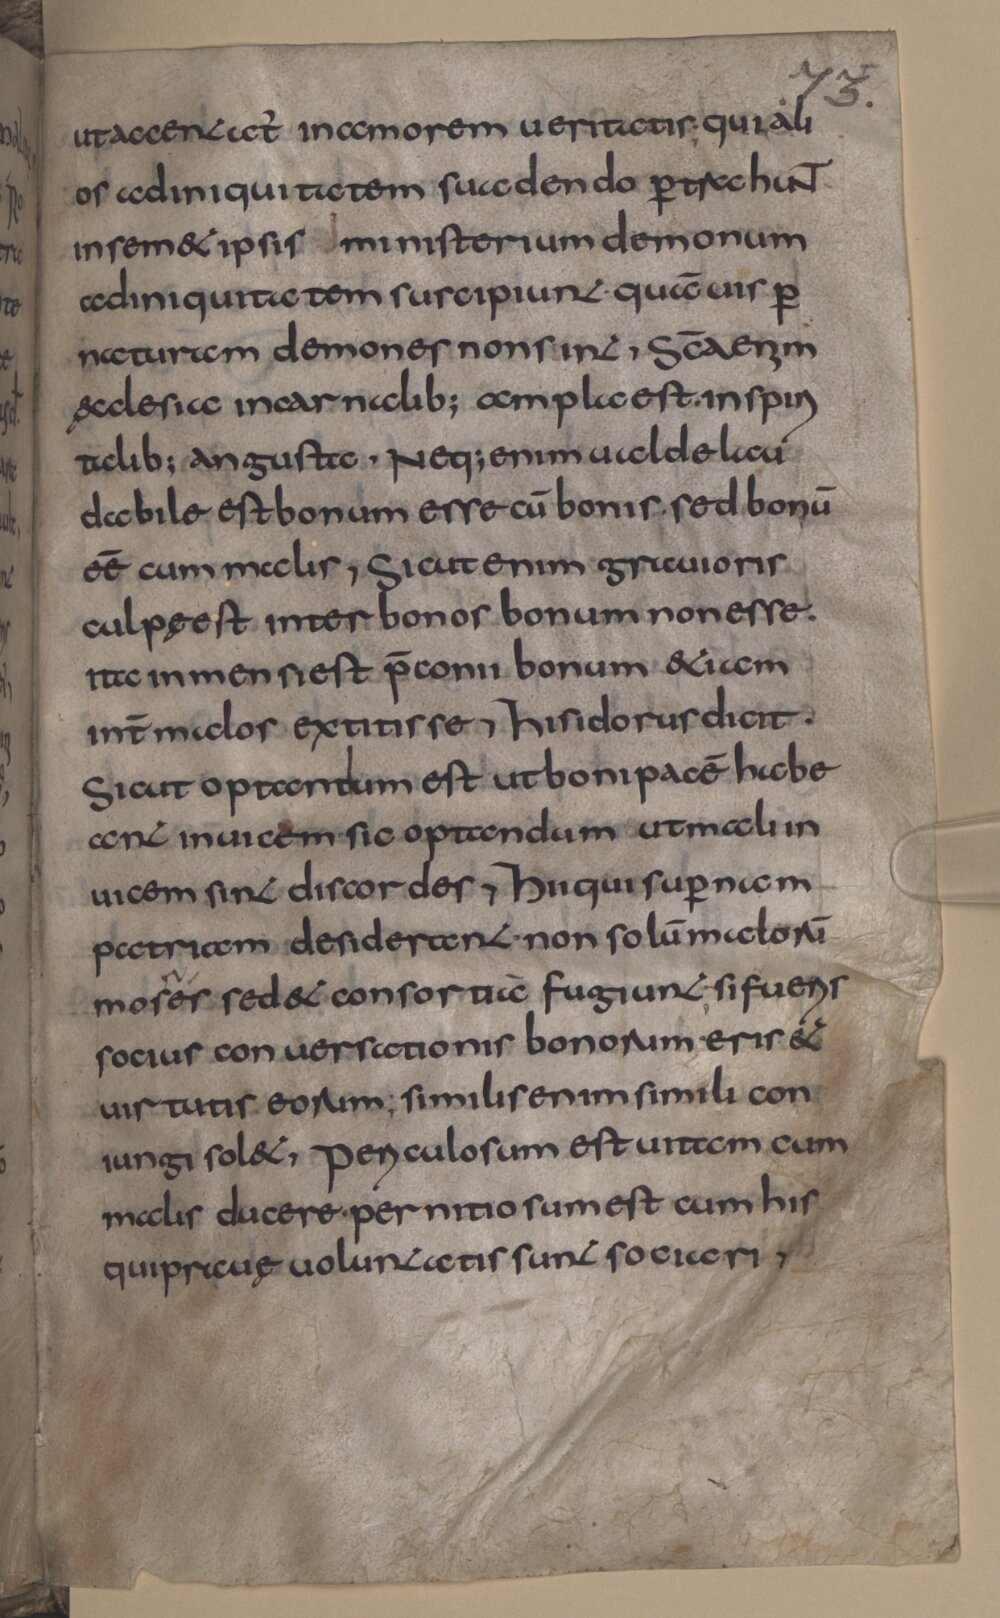 73.
ut accendat̄ in amorem ueritatis; qui ali
os ad iniquitatem suadendo ꝑtrahunt
in sem& ipsis ministerium demonum
ad iniquitatem suscipiunt · quāuis ꝑ
naturam demones non sint, Sc̄a enim
ęclesia in carnalib; ampla est. in spiri
talib; angusta · Neq; enim ualde lau
dabile est bonum esse cū bonis · sed bonū
eē cum malis, Sicut enim grauioris
culpę est inter bonos bonum non esse.
ita inmensi est p̄conii bonum &iam
int̄ malos extitisse, hisidorus dicit.
Sicut optandum est ut boni pacē habe
ant inuicem · sic optandum ut mali in
uicem sint discordes, hii qui suꝑnam
patriam desiderant · non solū malorū
mores sed & consortia fugiunt; si fueris
socius conuersationis bonorum · eris &
uirtutis eorum; similis enim simili con
iungi sol&, Periculosum est uitam cum
malis ducere · pernitiosum est cum his
qui prauę uoluntatis sunt sociari,